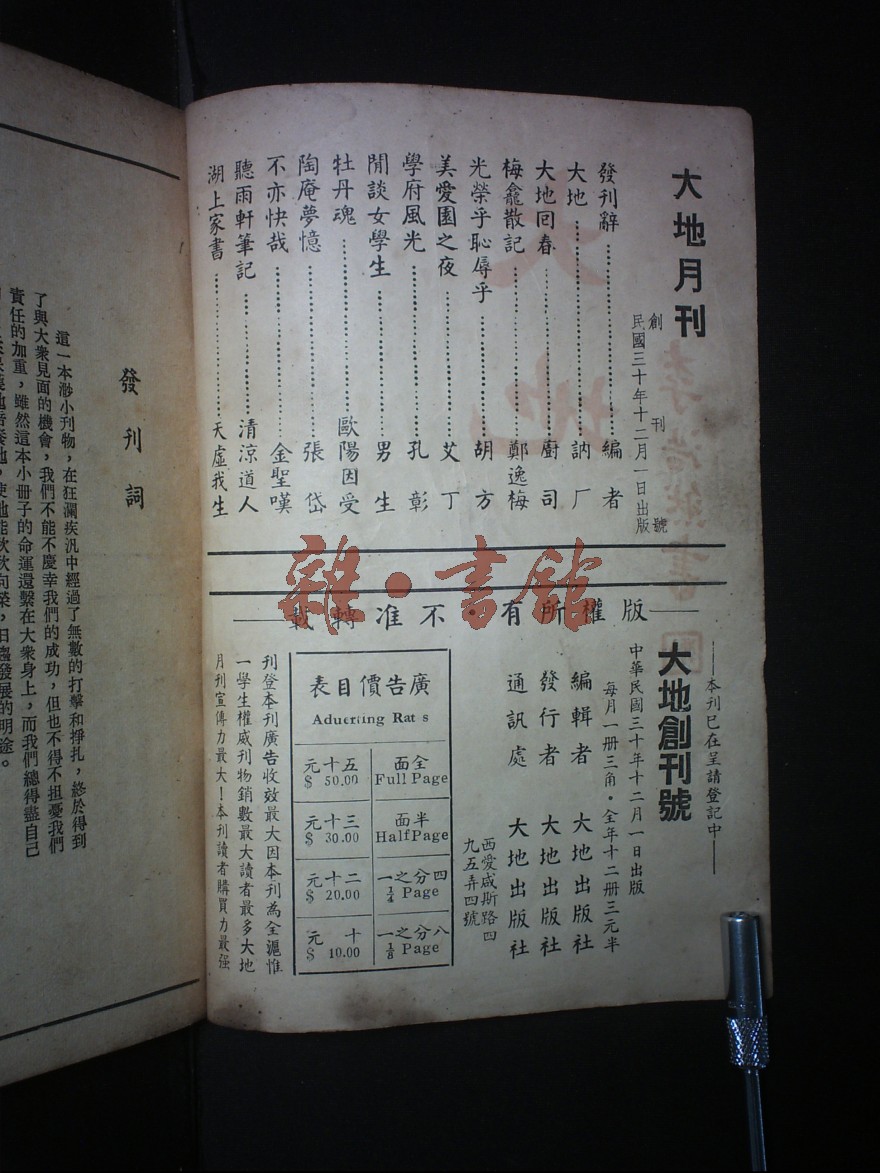 大地月刊
創刊號
民國三十年十二月一日出版
發刊辭……編者
大地……訥厂
大地回春……廚司
梅龕散記……鄭逸梅
光榮乎恥辱乎……胡方
美愛園之夜……艾丁
學府風光……孔彰
閒談女學生……男生
牡丹魂……歐陽因受
陶庵夢憶……張岱
不亦快哉……金聖嘆
聽雨軒筆記……清涼道人
湖上家書……天虛我生
版權所有·不准轉載
——本刊已在呈請登記中——
大地創刊號
中華民國三十年十二月一日出版
每月一册三角·全年十二册三元半
編輯者 大地出版社
發行者 大地出版社
通訊處 大地出版社
西愛咸斯路四
九五弄四號
廣告價目表
Aduerting Rat s
全面 Full Page 五十元 $ 50.00
半面 Half Page 三十元 $ 30.00
四分之一 ¼ Page 二十元 $ 20.00
八分之一 ⅛ Page 十元 $ 10.00
刊登本刊廣告收效最大因本刊為全滬惟
一學生權威刊物銷數最大讀者最多大地
月刊宣傳力最大！本刊讀者購買力最强
雜·書館
發刊詞
這一本渺小刊物，在狂瀾疾汎中經過了無數的打擊和掙扎，終於得到
了與大衆見面的機會，我們不能不慶幸我們的成功，但也不得不担憂我們
責任的加重，雖然這本小冊子的命運還繫在大衆身上，而我們總得盡自己
地培養她，使她能欣欣向榮，日趨發展的明途。